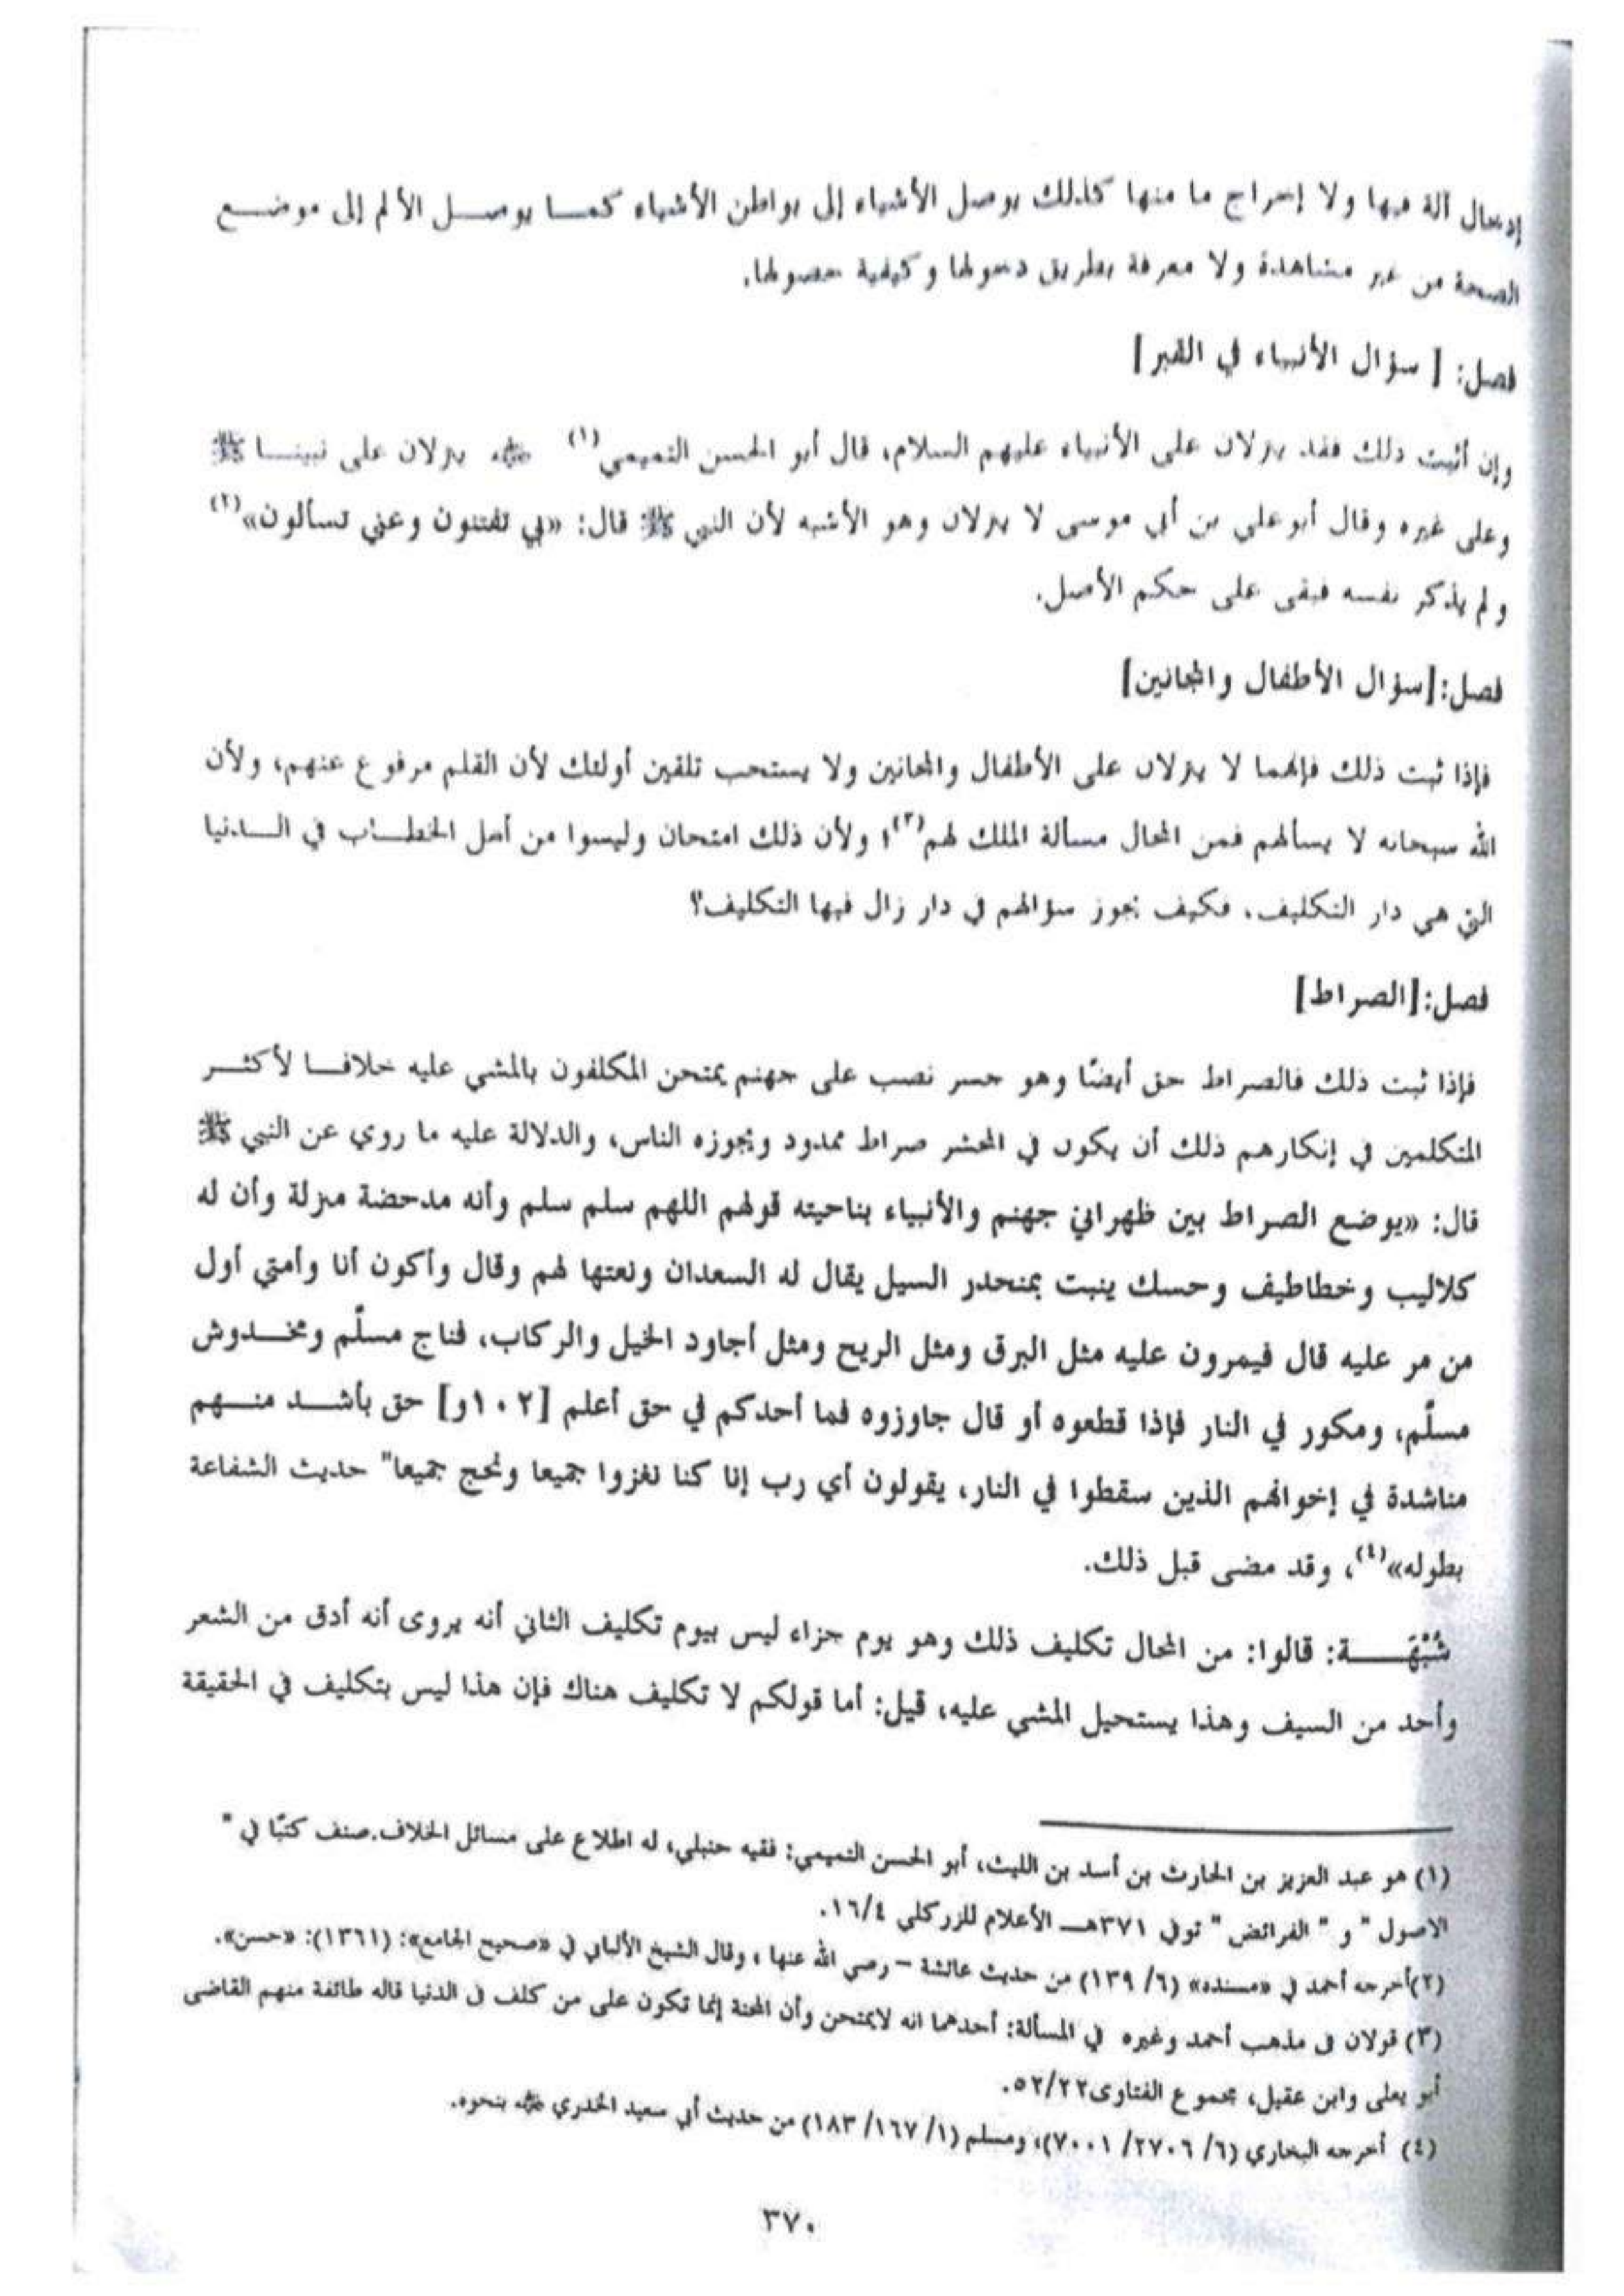 إدخال آلة فيها ولا إخراج ما منها كذلك يوصل الأشياء إلى بواطن الأشياء كما يوصل الألم إلى موضع
الصحة من غير مشاهدة ولا معرفة بطريق دخولها وكيفية حصولها.
فصل: [ سؤال الأنبياء في القبر]
وإن أثبت ذلك فقد ينزلان على الأنبياء عليهم السلام، قال أبو الحسن التميمي(١) ﷺ ينزلان على نبينا ﷺ
وعلى غيره وقال أبو علي بن أبي موسى لا ينزلان وهو الأشبه لأن النبي ﷺ قال: «بي تفتنون وعني تسألون»(٢)
ولم يذكر نفسه فبقى على حكم الأصل.
فصل:[سؤال الأطفال والمجانين]
فإذا ثبت ذلك فإنهما لا ينزلان على الأطفال والمجانين ولا يستحب تلقين أولئك لأن القلم مرفوع عنهم، ولأن
الله سبحانه لا يسألهم فمن المحال مسألة الملك لهم(٣)؛ ولأن ذلك امتحان وليسوا من أهل الخطاب في الدنيا
التي هي دار التكليف، فكيف يجوز سؤالهم في دار زال فيها التكليف؟
فصل:[الصراط]
فإذا ثبت ذلك فالصراط حق أيضًا وهو جسر نصب على جهنم يمتحن المكلفون بالمشي عليه خلافا لأكثر
المتكلمين في إنكارهم ذلك أن يكون في المحشر صراط ممدود ويجوزه الناس، والدلالة عليه ما روي عن النبي ﷺ
قال: «يوضع الصراط بين ظهراني جهنم والأنبياء بناحيته قولهم اللهم سلم سلم وأنه مدحضة مزلة وأن له
كلاليب وخطاطيف وحسك ينبت بمنحدر السيل يقال له السعدان ونعتها لهم وقال وأكون أنا وأمتي أول
من مر عليه قال فيمرون عليه مثل البرق ومثل الريح ومثل أجاود الخيل والركاب، فناج مسلّم ومخدوش
مسلّم، ومكور في النار فإذا قطعوه أو قال جاوزوه فما أحدكم في حق أعلم [١٠٢و] حق بأشد منهم
مناشدة في إخوانهم الذين سقطوا في النار، يقولون أي رب إنا كنا نغزوا جميعا ونحج جميعا" حديث الشفاعة
بطوله»(٤)، وقد مضى قبل ذلك.
شُبْهَة: قالوا: من المحال تكليف ذلك وهو يوم جزاء ليس بيوم تكليف الثاني أنه يروى أنه أدق من الشعر
وأحد من السيف وهذا يستحيل المشي عليه، قيل: أما قولكم لا تكليف هناك فإن هذا ليس بتكليف في الحقيقة
(١) هو عبد العزيز بن الحارث بن أسد بن الليث، أبو الحسن التميمي: فقيه حنبلي، له اطلاع على مسائل الخلاف.صنف كتبًا في "
الاصول " و " الفرائض " توفي ٣٧١هـ الأعلام للزركلي ١٦/٤.
(٢)أخرجه أحمد في «مسنده» (٦/ ١٣٩) من حديث عائشة – رضي الله عنها ، وقال الشيخ الألباني في «صحيح الجامع»: (١٣٦١): «حسن».
(٣) قولان في مذهب أحمد وغيره في المسألة: أحدهما انه لايمتحن وأن المحنة إنما تكون على من كلف في الدنيا قاله طائفة منهم القاضى
أبو يعلى وابن عقيل، مجموع الفتاوى٥٢/٢٢.
(٤) أخرجه البخاري (٦/ ٢٧٠٦/ ٧٠٠١)، ومسلم (١/ ١٦٧/ ١٨٣) من حديث أبي سعيد الخدري ﷺ بنحوه.
٣٧٠